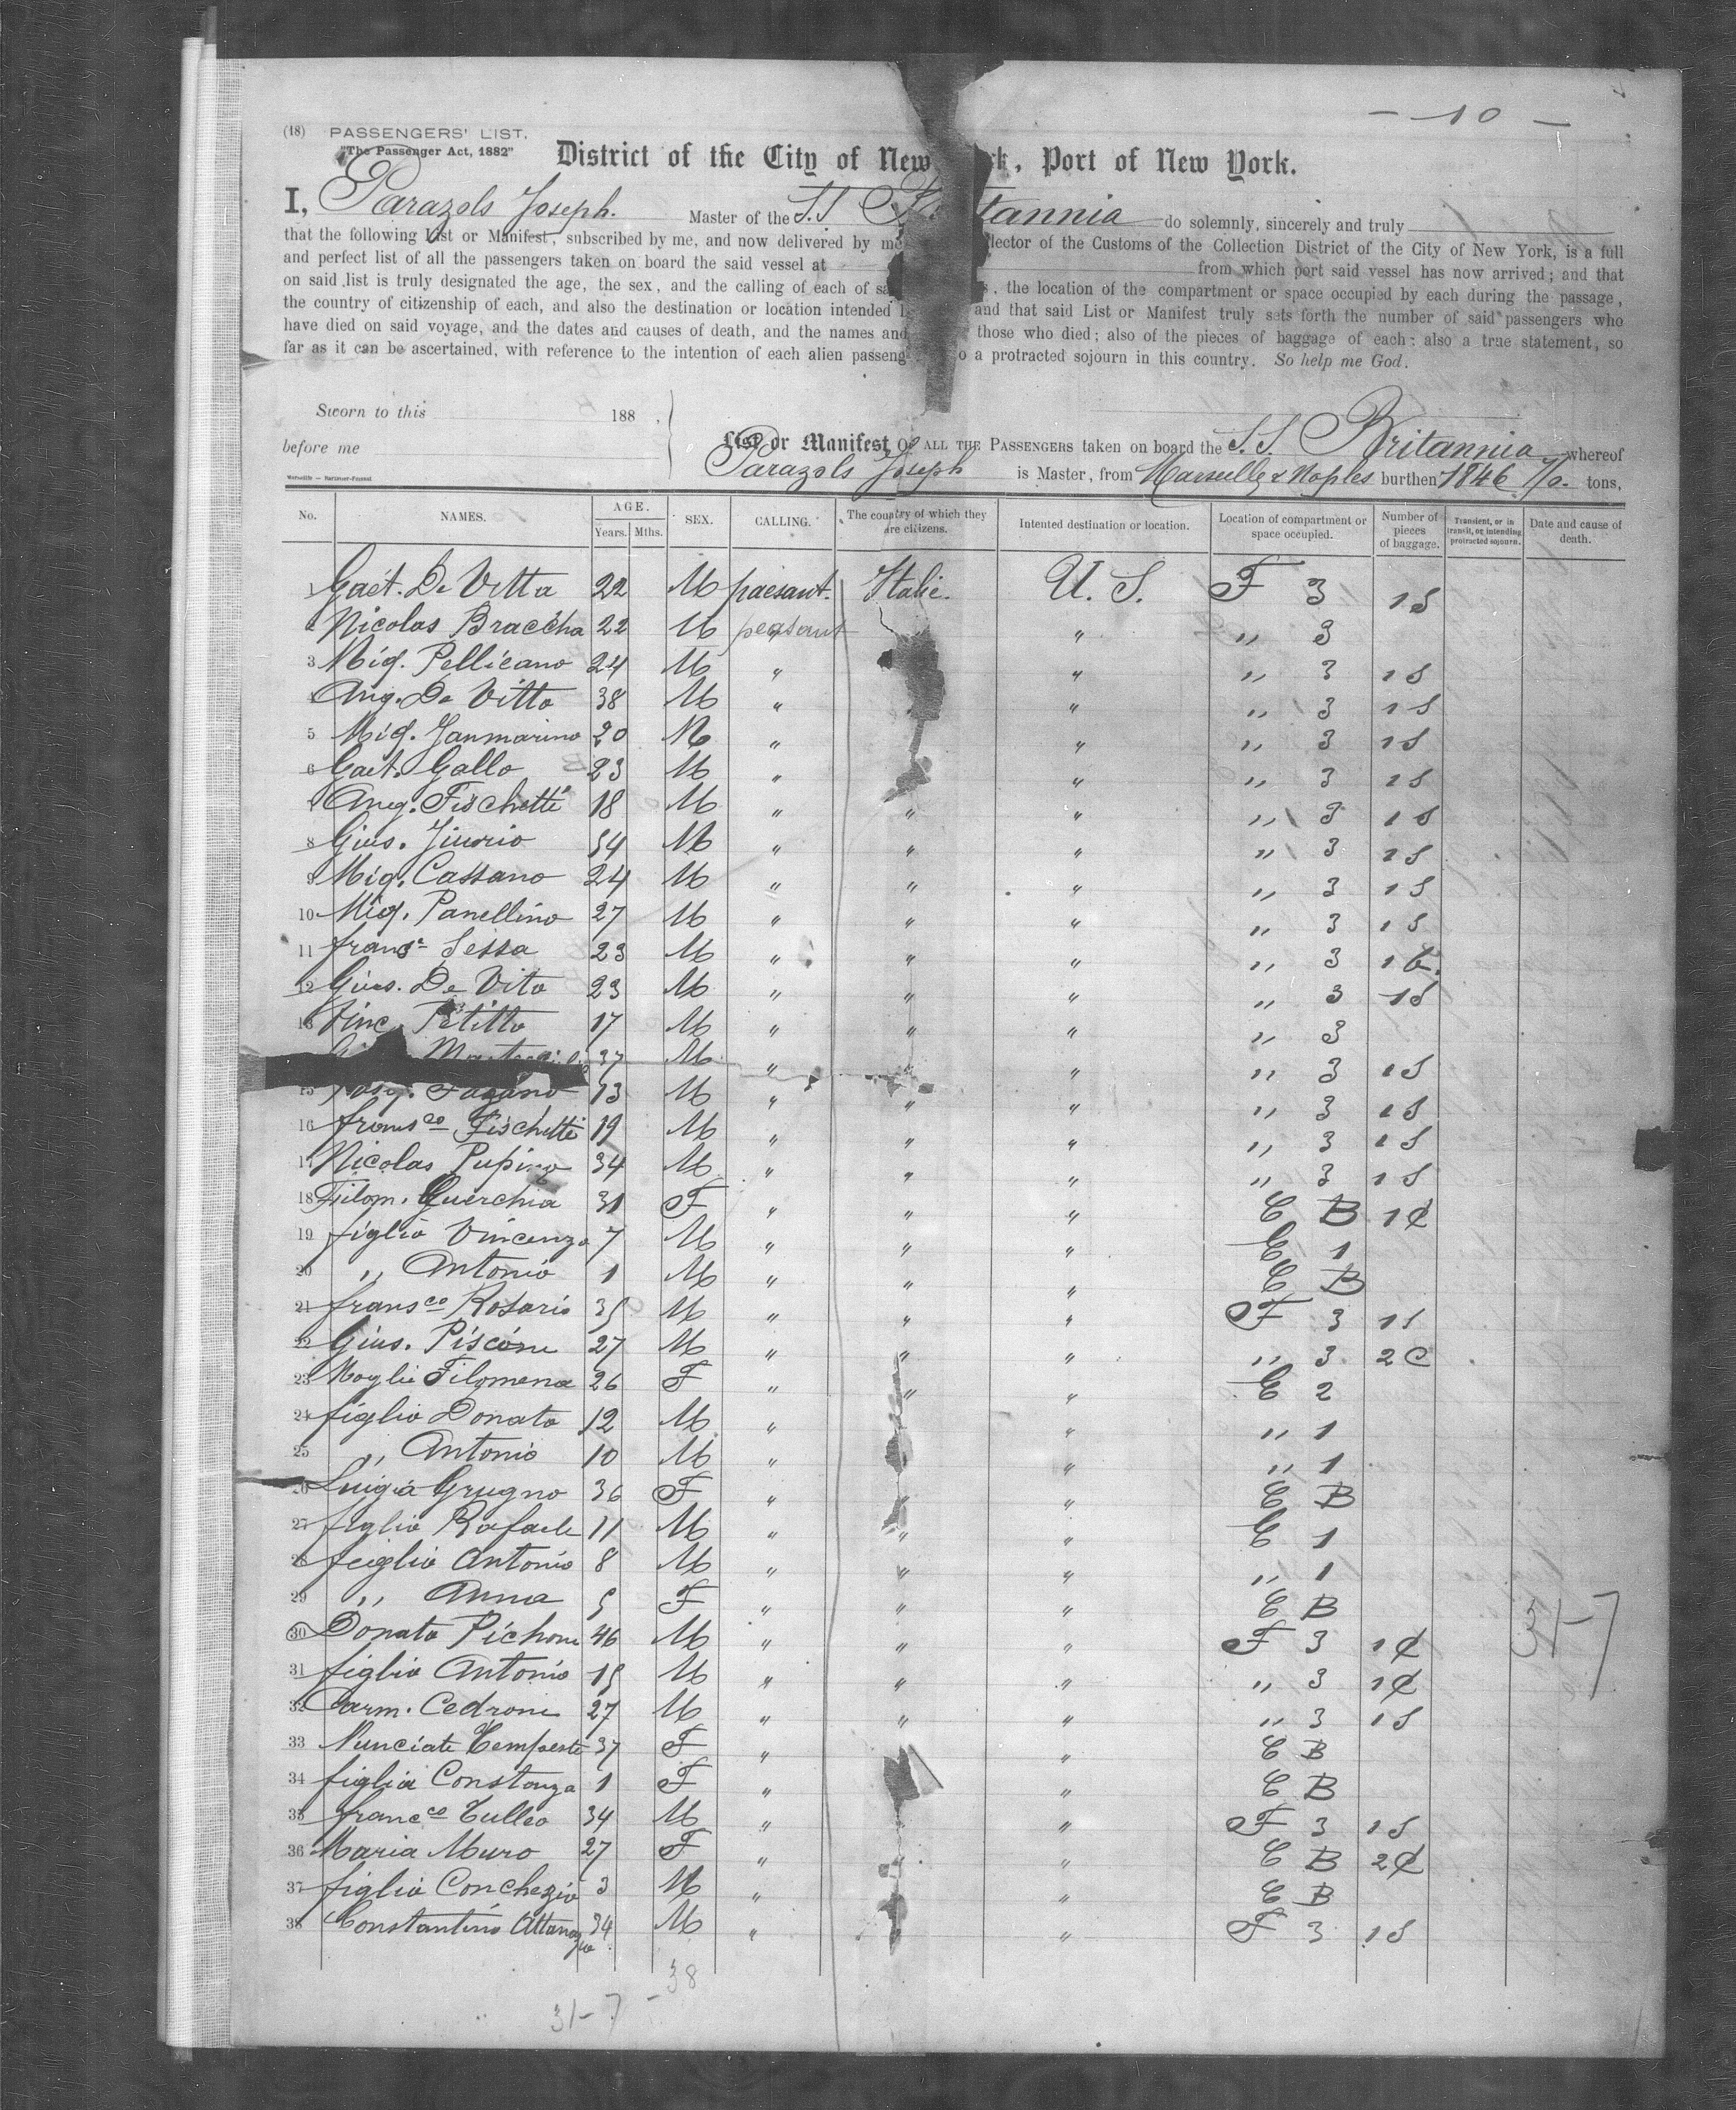 - 10 -
(18) PASSENGERS' LIST.
"The Passenger Act, 1882"
District of the City of New rk, Port of New York.
I, Parazols Joseph. Master of the S.S tannia do solemnly, sincerely and truly
that the following List or Manifest, subscribed by me, and now delivered by me lector of the Customs of the Collection District of the City of New York, is a full
and perfect list of all the passengers taken on board the said vessel at from which port said vessel has now arrived; and that
on said list is truly designated the age, the sex, and the calling of each of sa s, the location of the compartment or space occupied by each during the passage,
the country of citizenship of each, and also the destination or location intended and that said List or Manifest truly sets forth the number of said passengers who
have died on said voyage, and the dates and causes of death, and the names and those who died; also of the pieces of baggage of each: also a true statement, so
far as it can be ascertained, with reference to the intention of each alien passeng o a protracted sojourn in this country. So help me God.
Sworn to this 188 .
before me
List or Manifest OF ALL THE PASSENGERS taken on board the S.S. Britannia whereof
Parazols Joseph is Master, from Marseille & Naples burthen 1846 tons,
No. NAMES. AGE. Years. Mths. SEX. CALLING. The country of which they are citizens. Intented destination or location. Location of compartment or space occupied. Number of pieces of baggage. Transient, or in transit, or intending protracted sojourn. Date and cause of death.
1 Gaét. De Vitta 22 M paesant. Italie. U. S. F 3 1S
2 Nicolas Braccha 22 M peasant " " 3
3 Mig. Pellicano 24 M " " " 3 1S
4 Ang. De Vitto 38 M " " " 3 1S
5 Mig. Janmarino 20 M " " " 3 1S
6 Gaet. Gallo 23 M " " " 3 1S
7 Ang. Fischetti 18 M " " " " 3 1S
8 Gius. Jiurio 54 M " " " " 3 1S
9 Mig. Cassano 24 M " " " " 3 1S
10 Mig. Panellino 27 M " " " " 3 1S
11 fransc Sessa 23 M " " " " 3 1
12 Gius. De Vito 23 M " " " " 3 1S
13 Vinc. Petitto 17 M " " " " 3
37 M " " " " 3 1S
15 Fagano 13 M " " " " 3 1S
16 fransco Fischetti 19 M " " " " 3 1S
17 Nicolas Pupino 34 M " " " " 3 1S
18 Filom. Guerchia 31 F " " " C B 1C
19 figlio Vincenzo 7 M " " " C 1
20 " Antonio 1 M " " " C B
21 fransco Rosario 35 M " " " F 3 1S
22 Gius. Piscone 27 M " " " " 3 2C
23 Moglie Filomena 26 F " " " C 2
24 figlio Donato 12 M " " " 1
25 " Antonio 10 M " " " 1
26 Luigia Grugno 36 F " " " C B
27 figlio Rafaele 11 M " " " C 1
28 feiglio Antonio 8 M " " " " 1
29 " Anna 5 F " " " C B
30 Donato Pichone 46 M " " " F 3 1C
31 figlio Antonio 15 M " " " " 3 1C
32 Carm. Cedrone 27 M " " " " 3 1S
33 Nunciate Tempeste 37 F " " C B
34 figlia Constanza 1 F " " C B
35 francco Tulleo 34 M " " F 3 1S
36 Maria Muro 27 F " " C B 2C
37 figlio Conchezio 3 M " " C B
38 Constantino Attanazio 34 M " " " F 3 1S
31-7
31-7 - 38